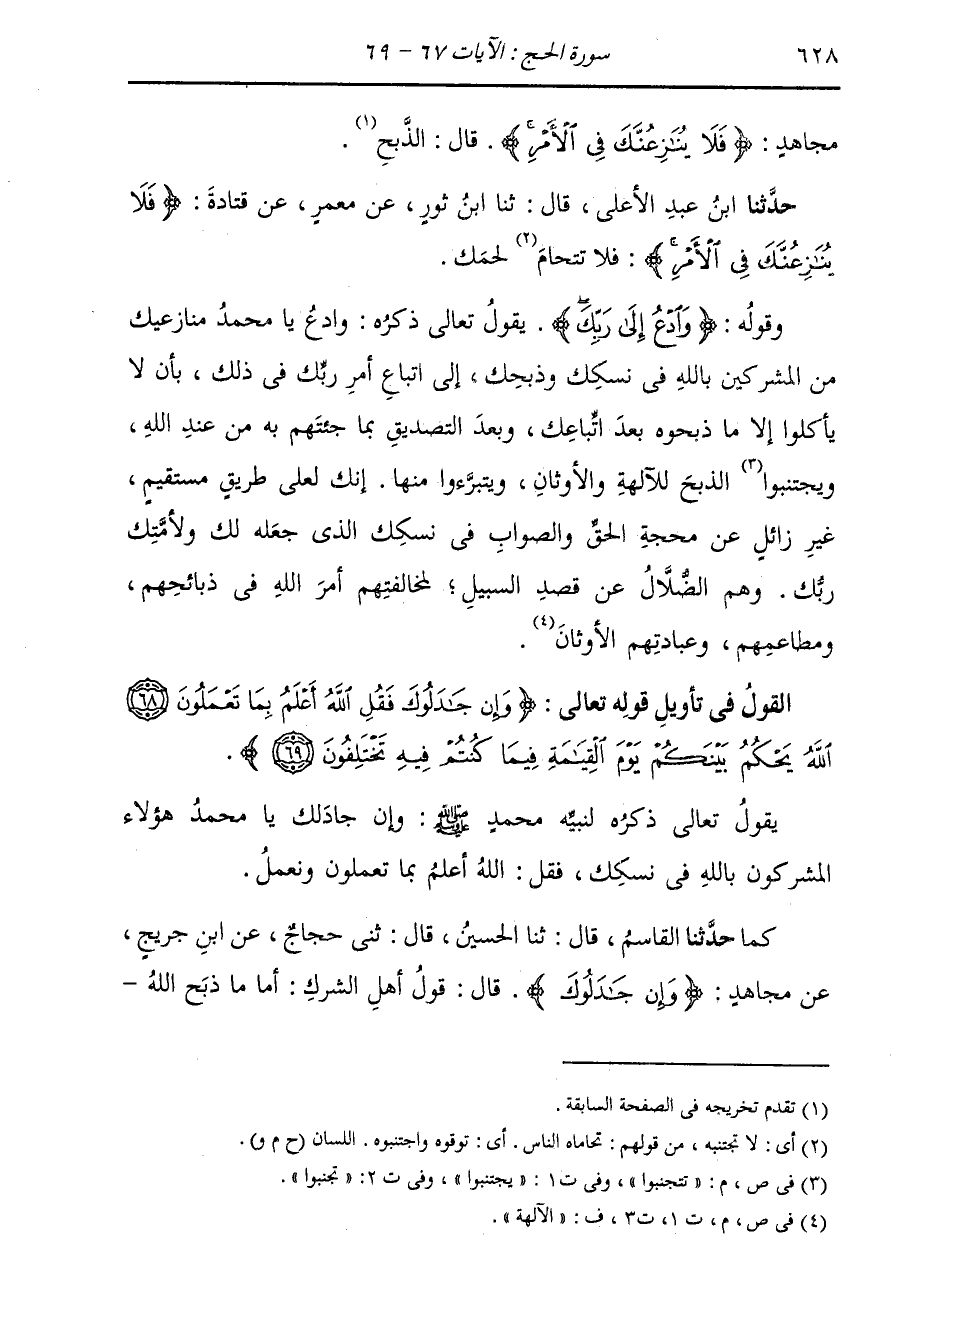 ٦٢٨ سورة الحج : الآيات ٦٧ - ٦٩
مجاهدٍ : ﴿ فَلَا يُنَٰزِعُنَّكَ فِى ٱلْأَمْرِۚ ﴾ . قال : الذَّبحِ(١) .
حدَّثنا ابنُ عبدِ الأعلى ، قال : ثنا ابنُ ثورٍ ، عن معمرٍ ، عن قتادةَ : ﴿ فَلَا
يُنَٰزِعُنَّكَ فِى ٱلْأَمْرِۚ ﴾ : فلا تتحامَ(٢) لحمَك .
وقولُه : ﴿ وَٱدْعُ إِلَىٰ رَبِّكَۖ ﴾ . يقولُ تعالى ذكرُه : وادعُ يا محمدُ منازعيك
من المشركين باللهِ فى نسكِك وذبحِك ، إلى اتباعِ أمرِ ربِّك فى ذلك ، بأن لا
يأكلوا إلا ما ذبحوه بعدَ اتِّباعِك ، وبعدَ التصديقِ بما جئتَهم به من عندِ اللهِ ،
ويجتنبوا(٣) الذبحَ للآلهةِ والأوثانِ ، ويتبرَّءوا منها . إنك لعلى طريقٍ مستقيمٍ ،
غيرِ زائلٍ عن محجةِ الحقِّ والصوابِ فى نسكِك الذى جعَله لك ولأمَّتِك
ربُّك . وهم الضُّلَّالُ عن قصدِ السبيلِ ؛ لمخالفتِهم أمرَ اللهِ فى ذبائحِهم ،
ومطاعمِهم ، وعبادتِهم الأوثانَ(٤) .
القولُ فى تأويلِ قولِه تعالى : ﴿ وَإِن جَٰدَلُوكَ فَقُلِ ٱللَّهُ أَعْلَمُ بِمَا تَعْمَلُونَ ٦٨
ٱللَّهُ يَحْكُمُ بَيْنَكُمْ يَوْمَ ٱلْقِيَٰمَةِ فِيمَا كُنتُمْ فِيهِ تَخْتَلِفُونَ ٦٩ ﴾ .
يقولُ تعالى ذكرُه لنبيِّه محمدٍ ﷺ : وإن جادَلك يا محمدُ هؤلاء
المشركون باللهِ فى نسكِك ، فقل : اللهُ أعلمُ بما تعملون ونعملُ .
كما حدَّثنا القاسمُ ، قال : ثنا الحسينُ ، قال : ثنى حجاجٌ ، عن ابنِ جريجٍ ،
عن مجاهدٍ : ﴿ وَإِن جَٰدَلُوكَ ﴾ . قال : قولُ أهلِ الشركِ : أما ما ذبَح اللهُ -
(١) تقدم تخريجه فى الصفحة السابقة .
(٢) أى : لا تجتنبه ، من قولهم : تحاماه الناس . أى : توقوه واجتنبوه . اللسان (ح م و) .
(٣) فى ص ، م : « تتجنبوا » ، وفى ت ١ : « يجتنبوا » ، وفى ت ٢ : « تجنبوا » .
(٤) فى ص ، م ، ت ١ ، ت ٣ ، ف : « الآلهة » .